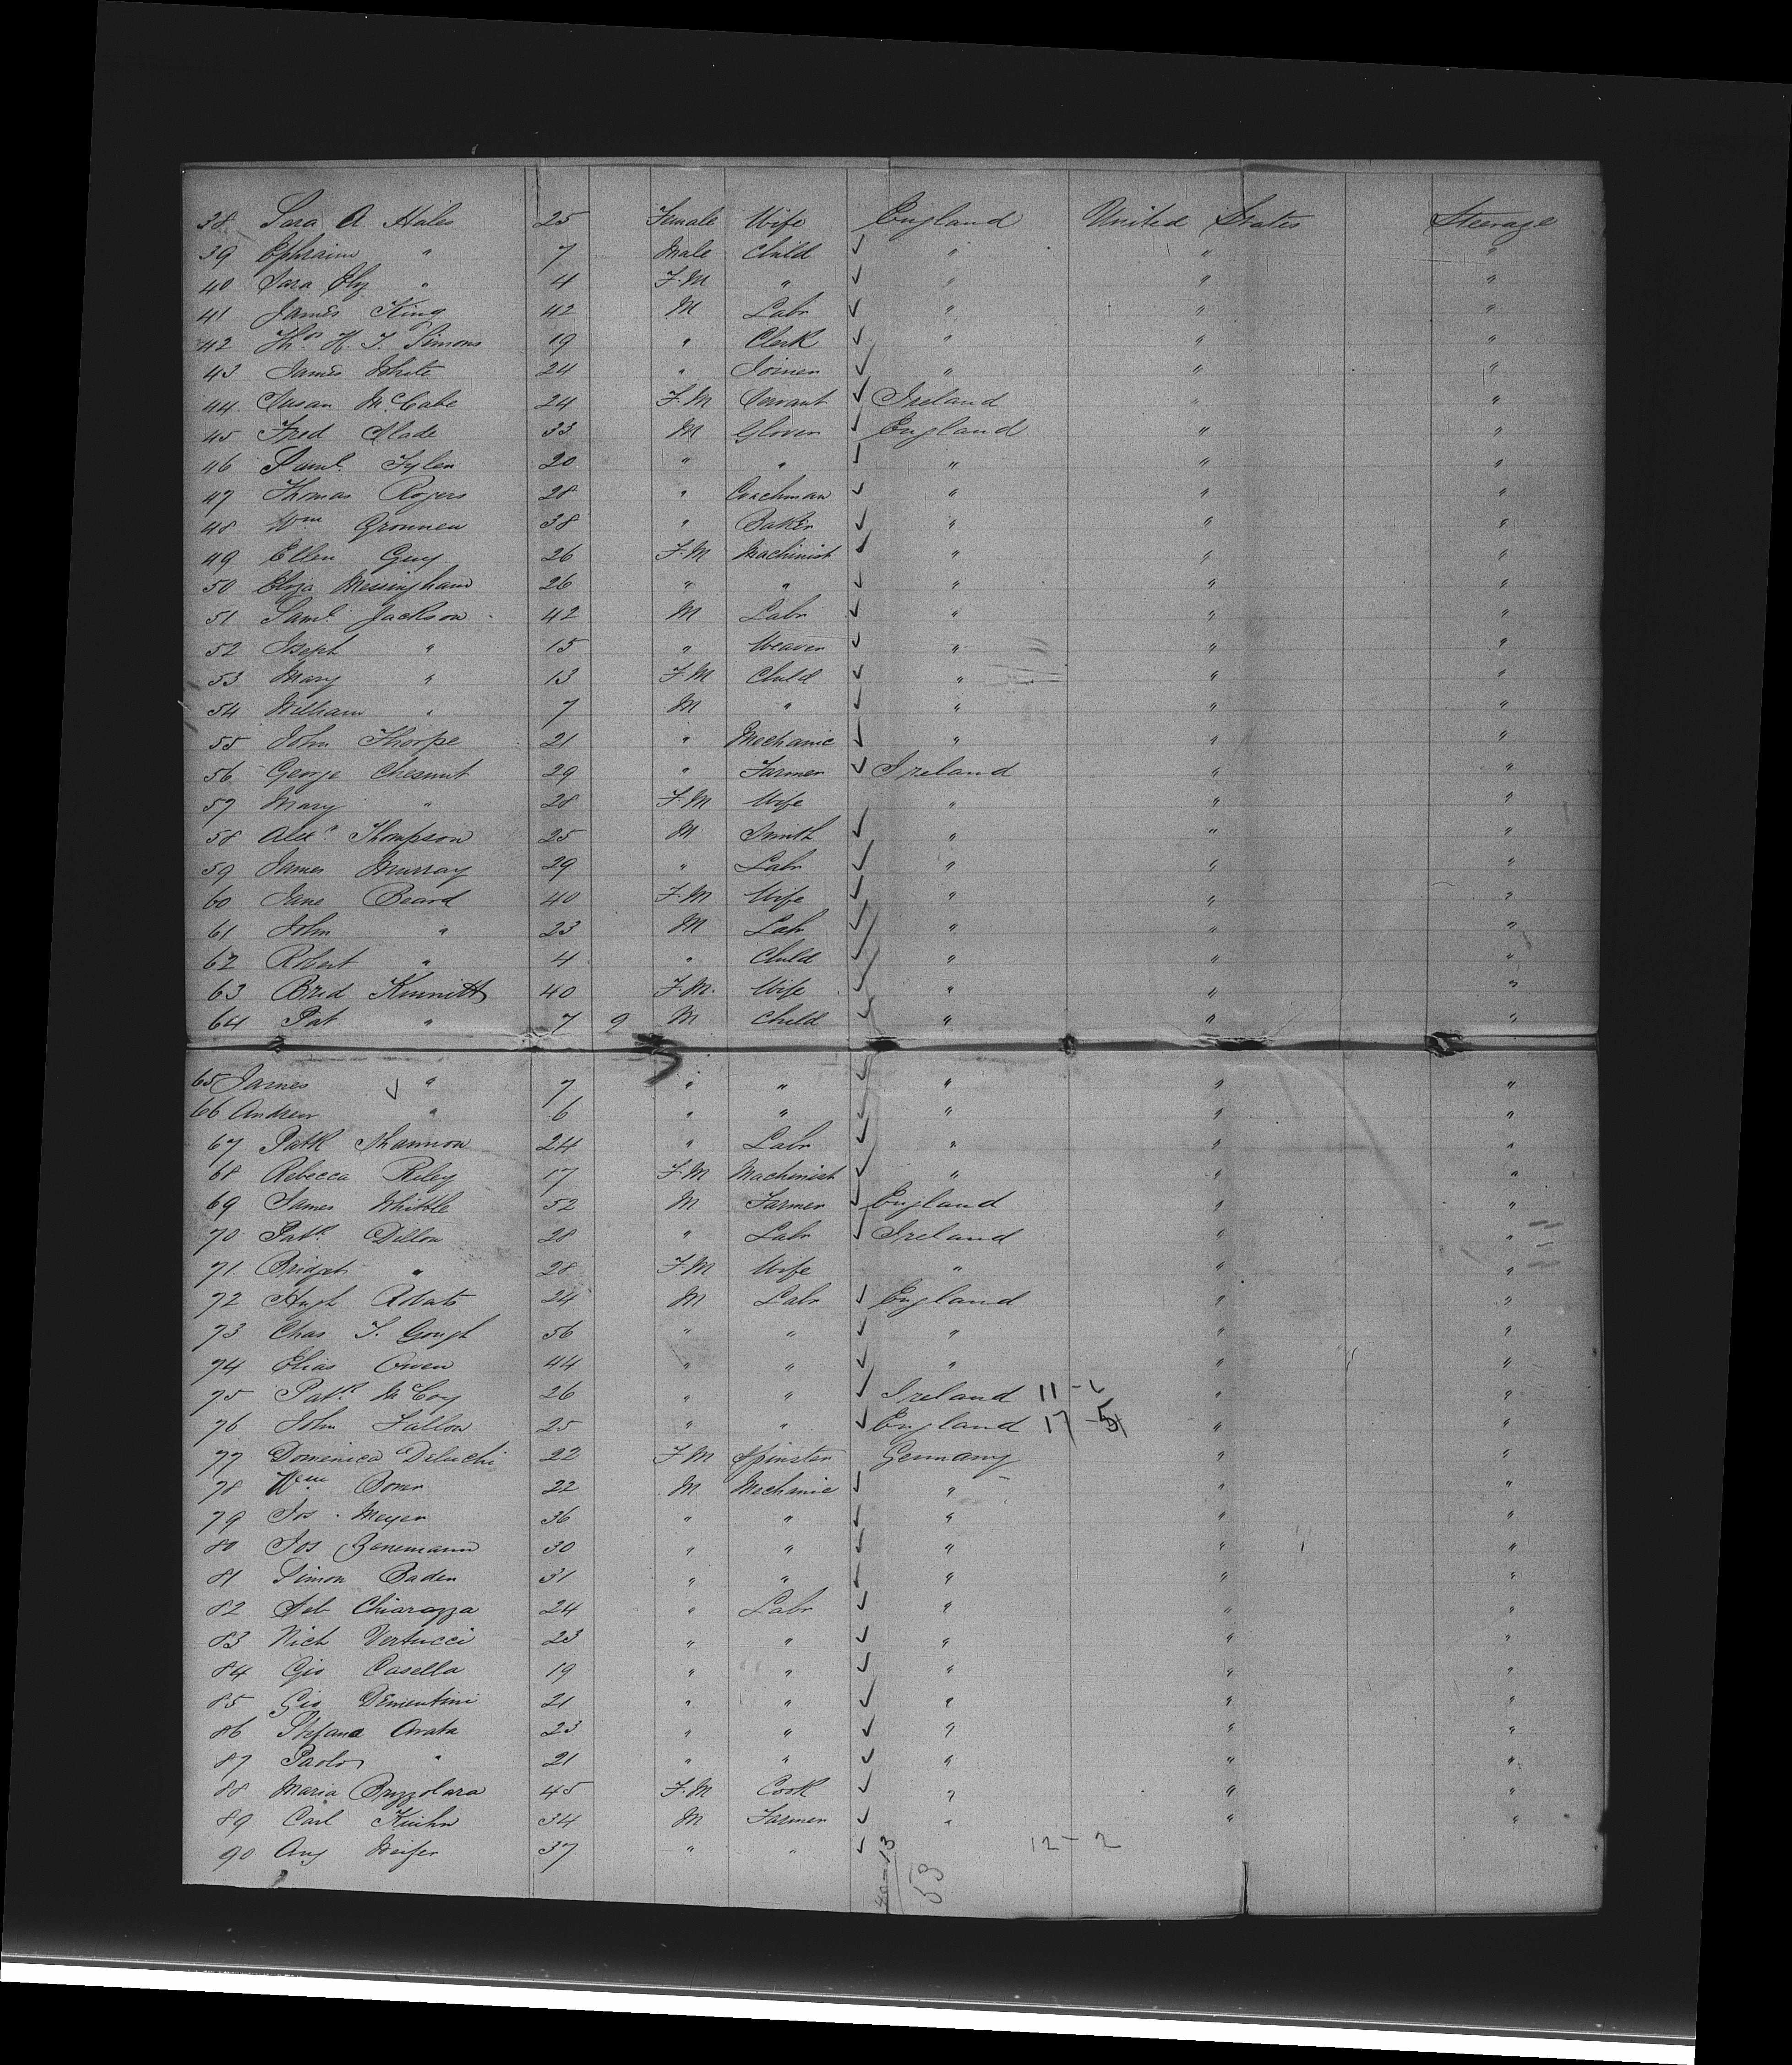 38 Sara A. Hales 25 Female Wife England United States Steerage
39 Ephraim " 7 Male Child " " "
40 Sara Eliz " 4 F.M " " " "
41 James King 42 M Labr " " "
42 Thos H. T. Simons 19 " Clerk " " "
43 James White 24 " Joiner " " "
44 Susan McCabe 24 F.M Servant Ireland " "
45 Fred Slade 33 M Glover England " "
46 Saml. Tyler 20 " " " " "
47 Thomas Rogers 28 " Coachman " " "
48 Wm 38 " Baker " " "
49 Ellen Guy 26 F.M Machinist " " "
50 Eliza Messingham 26 " " " " "
51 Saml. Jackson 42 M Labr " " "
52 Joseph " 15 " Weaver " " "
53 Mary " 13 F.M Child " " "
54 William " 7 M " " " "
55 John Thorpe 21 " Mechanic " " "
56 George Chesnut 29 " Farmer Ireland " "
57 Mary " 28 F.M Wife " " "
58 Alexr Thompson 25 M Smith " " "
59 James Murray 29 " Labr " " "
60 Jane Beard 40 F.M Wife " " "
61 John " 23 M Labr " " "
62 Robert " 4 " Child " " "
63 Brid Kinnitt 40 F.M. Wife " " "
64 Pat " 7 9 M Child " " "
65 James " 7 " " " " "
66 Andrew " 6 " " " " "
67 Patk Shannon 24 " Labr " " "
68 Rebecca Riley 17 F.M Machinist " " "
69 James Whittle 52 M Farmer England " "
70 Patk Dillon 28 " Labr Ireland " "
71 Bridget " 28 F.M Wife " " "
72 Hugh Robats 24 M Labr England " "
73 Chas T. Gough 56 " " " " "
74 Elias Owen 44 " " " " "
75 Patk McCoy 26 " " Ireland 11 - " "
76 John Fallow 25 " " England 17 - 5 " "
77 Domenica Deluchi 22 F.M Spinster Germany " "
78 Wm 22 M Mechanic " " "
79 Jos. Meyer 36 " " " " "
80 Jos Zonemann 30 " " " " "
81 Simon Baden 31 " " " " "
82 Seb Chiarazza 24 " Labr " " "
83 Nich Vertucci 23 " " " " "
84 Gio Casella 19 " " " " "
85 Gio Dementini 21 " " " " "
86 Stefano Arata 23 " " " " "
87 Paolo " 21 " " " " "
88 Maria Brizzolara 45 F.M Cook " " "
89 Carl Kuihn 34 M Farmer " " "
90 Aug 37 " " 12 - 2
40-13
53